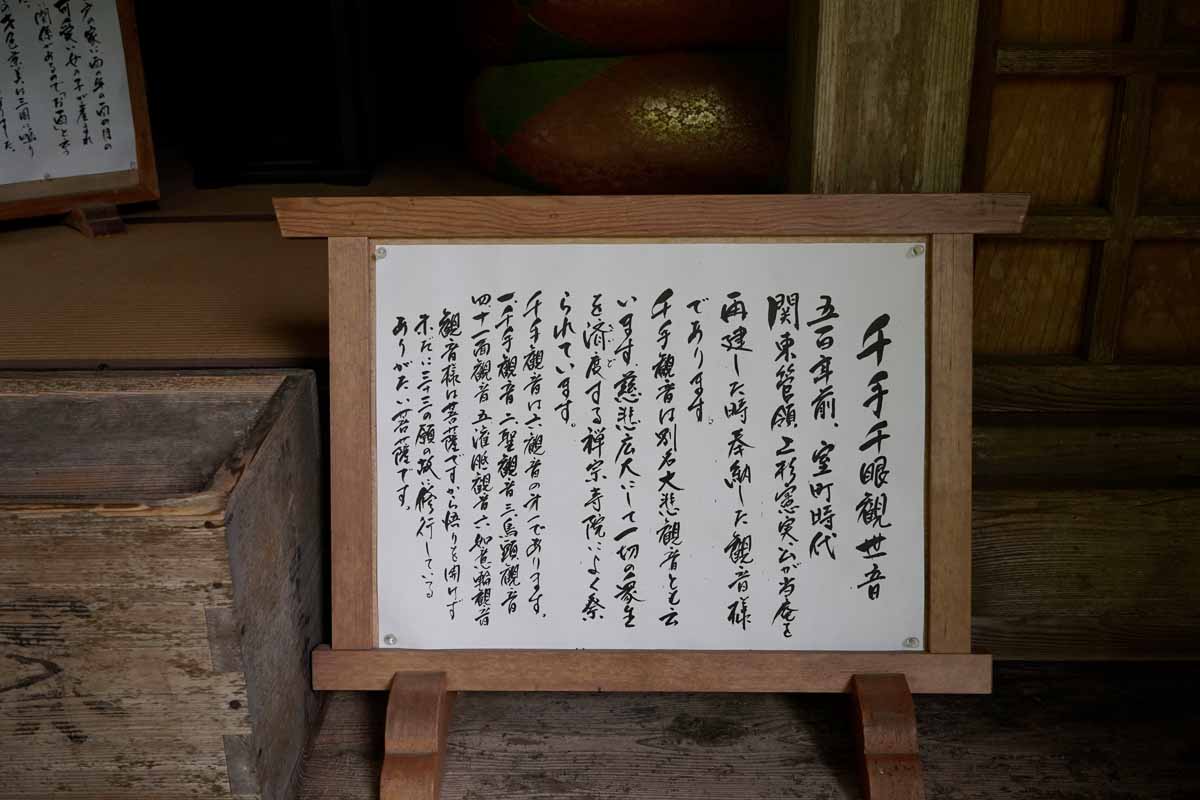 千手千眼観世音
五百年前、室町時代
関東管領上杉憲実公が当庵を
再建した時奉納した観音様
であります。
千手観音は別名大悲観音とも云
います。慈悲広大にして一切の衆生
を済度する禅宗寺院によく祭
られています。
千手観音は六観音の才一であります。
一、千手観音 二、聖観音 三、馬頭観音
四、十一面観音 五、准胝観音 六、如意輪観音
観音様は菩薩ですから悟りを開けず
未だに三十三の願の故に修行している
ありがたい菩薩です。
ど
可愛い女の子が産まれ